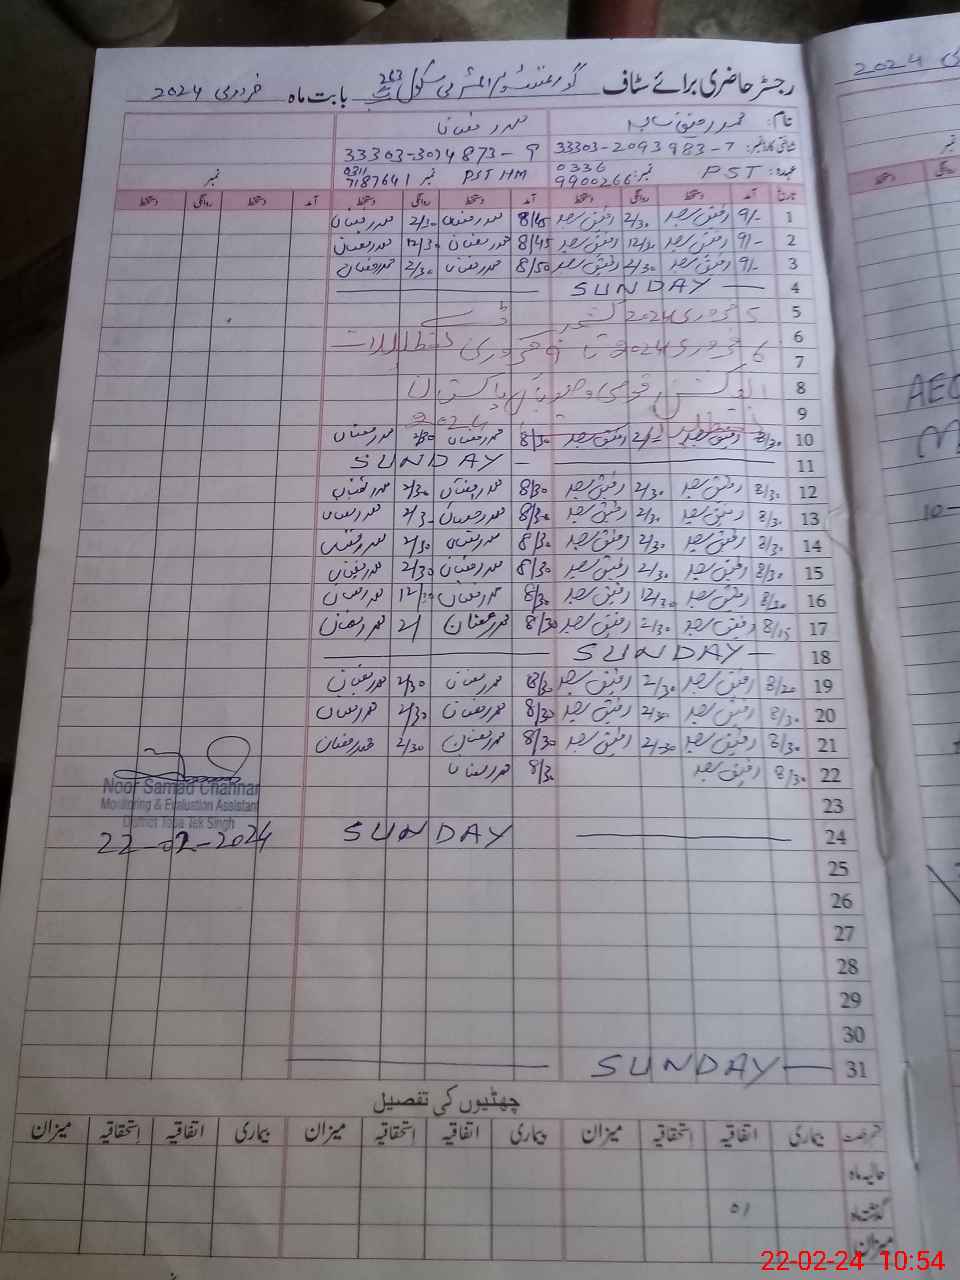 رجسٹر حاضری برائے سٹاف گورنمنٹ پرائمری سکول 263 بابت ماہ فروری 2024
2024
نام: محمد رفیق ساجد محمد رمضان
شناختی کارڈ نمبر: 33303-2093983-7 33303-3074873-9
عہدہ: PST نمبر: 0336 9900266 PST HM نمبر 0311 7187641 نمبر
تاریخ آمد دستخط روانگی دستخط آمد دستخط روانگی دستخط آمد دستخط روانگی دستخط
1 9/- رفیق ساجد 2/30 رفیق ساجد 8/45 محمد رمضان 2/30 محمد رمضان
2 9/- رفیق ساجد 12/30 رفیق ساجد 8/45 محمد رمضان 12/30 محمد رمضان
3 9/- رفیق ساجد 2/30 رفیق ساجد 8/50 محمد رمضان 2/30 محمد رمضان
4 SUNDAY
5 5 فروری 2024 کشمیر ڈے
6 6 فروری 2024 تا 9 فروری تعطیلات
7
8 الیکشن قومی و صوبائی پاکستان
9 2024
10 8/30 رفیق ساجد 2/- رفیق ساجد 8/30 محمد رمضان 2/30 محمد رمضان
11 SUNDAY
12 8/30 رفیق ساجد 2/30 رفیق ساجد 8/30 محمد رمضان 2/30 محمد رمضان
13 8/30 رفیق ساجد 2/30 رفیق ساجد 8/30 محمد رمضان 2/30 محمد رمضان
14 8/30 رفیق ساجد 2/30 رفیق ساجد 8/30 محمد رمضان 2/30 محمد رمضان
15 8/30 رفیق ساجد 2/30 رفیق ساجد 8/30 محمد رمضان 2/30 محمد رمضان
16 8/30 رفیق ساجد 12/30 رفیق ساجد 8/30 محمد رمضان 12/30 محمد رمضان
17 8/15 رفیق ساجد 2/30 رفیق ساجد 8/30 محمد رمضان 2/ محمد رمضان
18 SUNDAY
19 8/20 رفیق ساجد 2/30 رفیق ساجد 8/30 محمد رمضان 2/30 محمد رمضان
20 8/30 رفیق ساجد 2/30 رفیق ساجد 8/30 محمد رمضان 2/30 محمد رمضان
21 8/30 رفیق ساجد 2/30 رفیق ساجد 8/30 محمد رمضان 2/30 محمد رمضان
22 8/30 رفیق ساجد 8/30 محمد رمضان
Noor Samad Channar
Monitoring & Evaluation Assistant
District Toba Tek Singh
22-02-2024
23
24 SUNDAY
25
26
27
28
29
30
31 SUNDAY
چھٹیوں کی تفصیل
قسم رخصت بیماری اتفاقیہ استحقاقیہ میزان بیماری اتفاقیہ استحقاقیہ میزان بیماری اتفاقیہ استحقاقیہ میزان
حالیہ ماہ
گذشتہ ماہ 01
میزان
AEO
10-
22-02-24 10:54